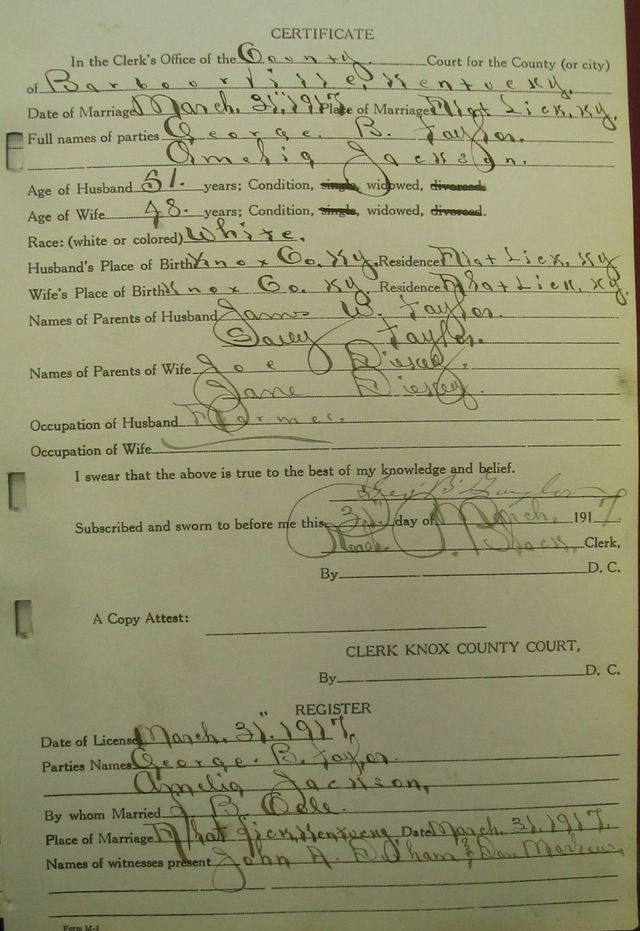 CERTIFICATE
In the Clerk's Office of the County Court for the County (or city)
of Barbourville, Kentucky.
Date of Marriage March. 31", 1917 Place of Marriage Flat Lick, Ky.
Full names of parties George. B. Taylor.
Amelia Jackson.
Age of Husband 51. years; Condition, single, widowed, divorced.
Age of Wife 48. years; Condition, single, widowed, divorced.
Race: (white or colored) White.
Husband's Place of Birth Knox Co. Ky. Residence Flat Lick, Ky
Wife's Place of Birth Knox Co. Ky. Residence Flat Lick, Ky.
Names of Parents of Husband James W. Taylor.
Taylor.
Names of Parents of Wife Joe
Jane
Occupation of Husband Farmer.
Occupation of Wife
I swear that the above is true to the best of my knowledge and belief.
Geo. B. Taylor
Subscribed and sworn to before me this 31" day of March, 1917
Clerk,
By D. C.
A Copy Attest:
CLERK KNOX COUNTY COURT,
By D. C.
REGISTER
Date of License March. 31", 1917,
Parties Names George. B. Taylor.
Amelia Jackson,
By whom Married J. B. Cole.
Place of Marriage Flat Lick, Kentucky Date March. 31, 1917.
Names of witnesses present John A. & Dan
Form M-3